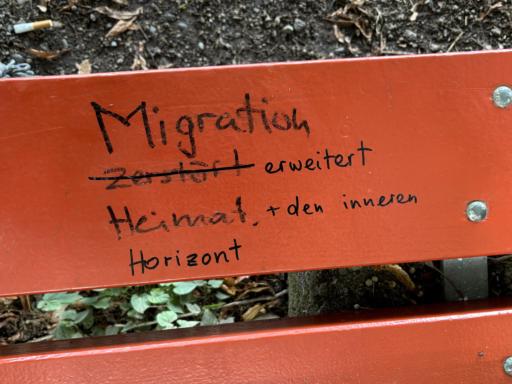 Migration
zerstört erweitert
Heimat. + den inneren
Horizont